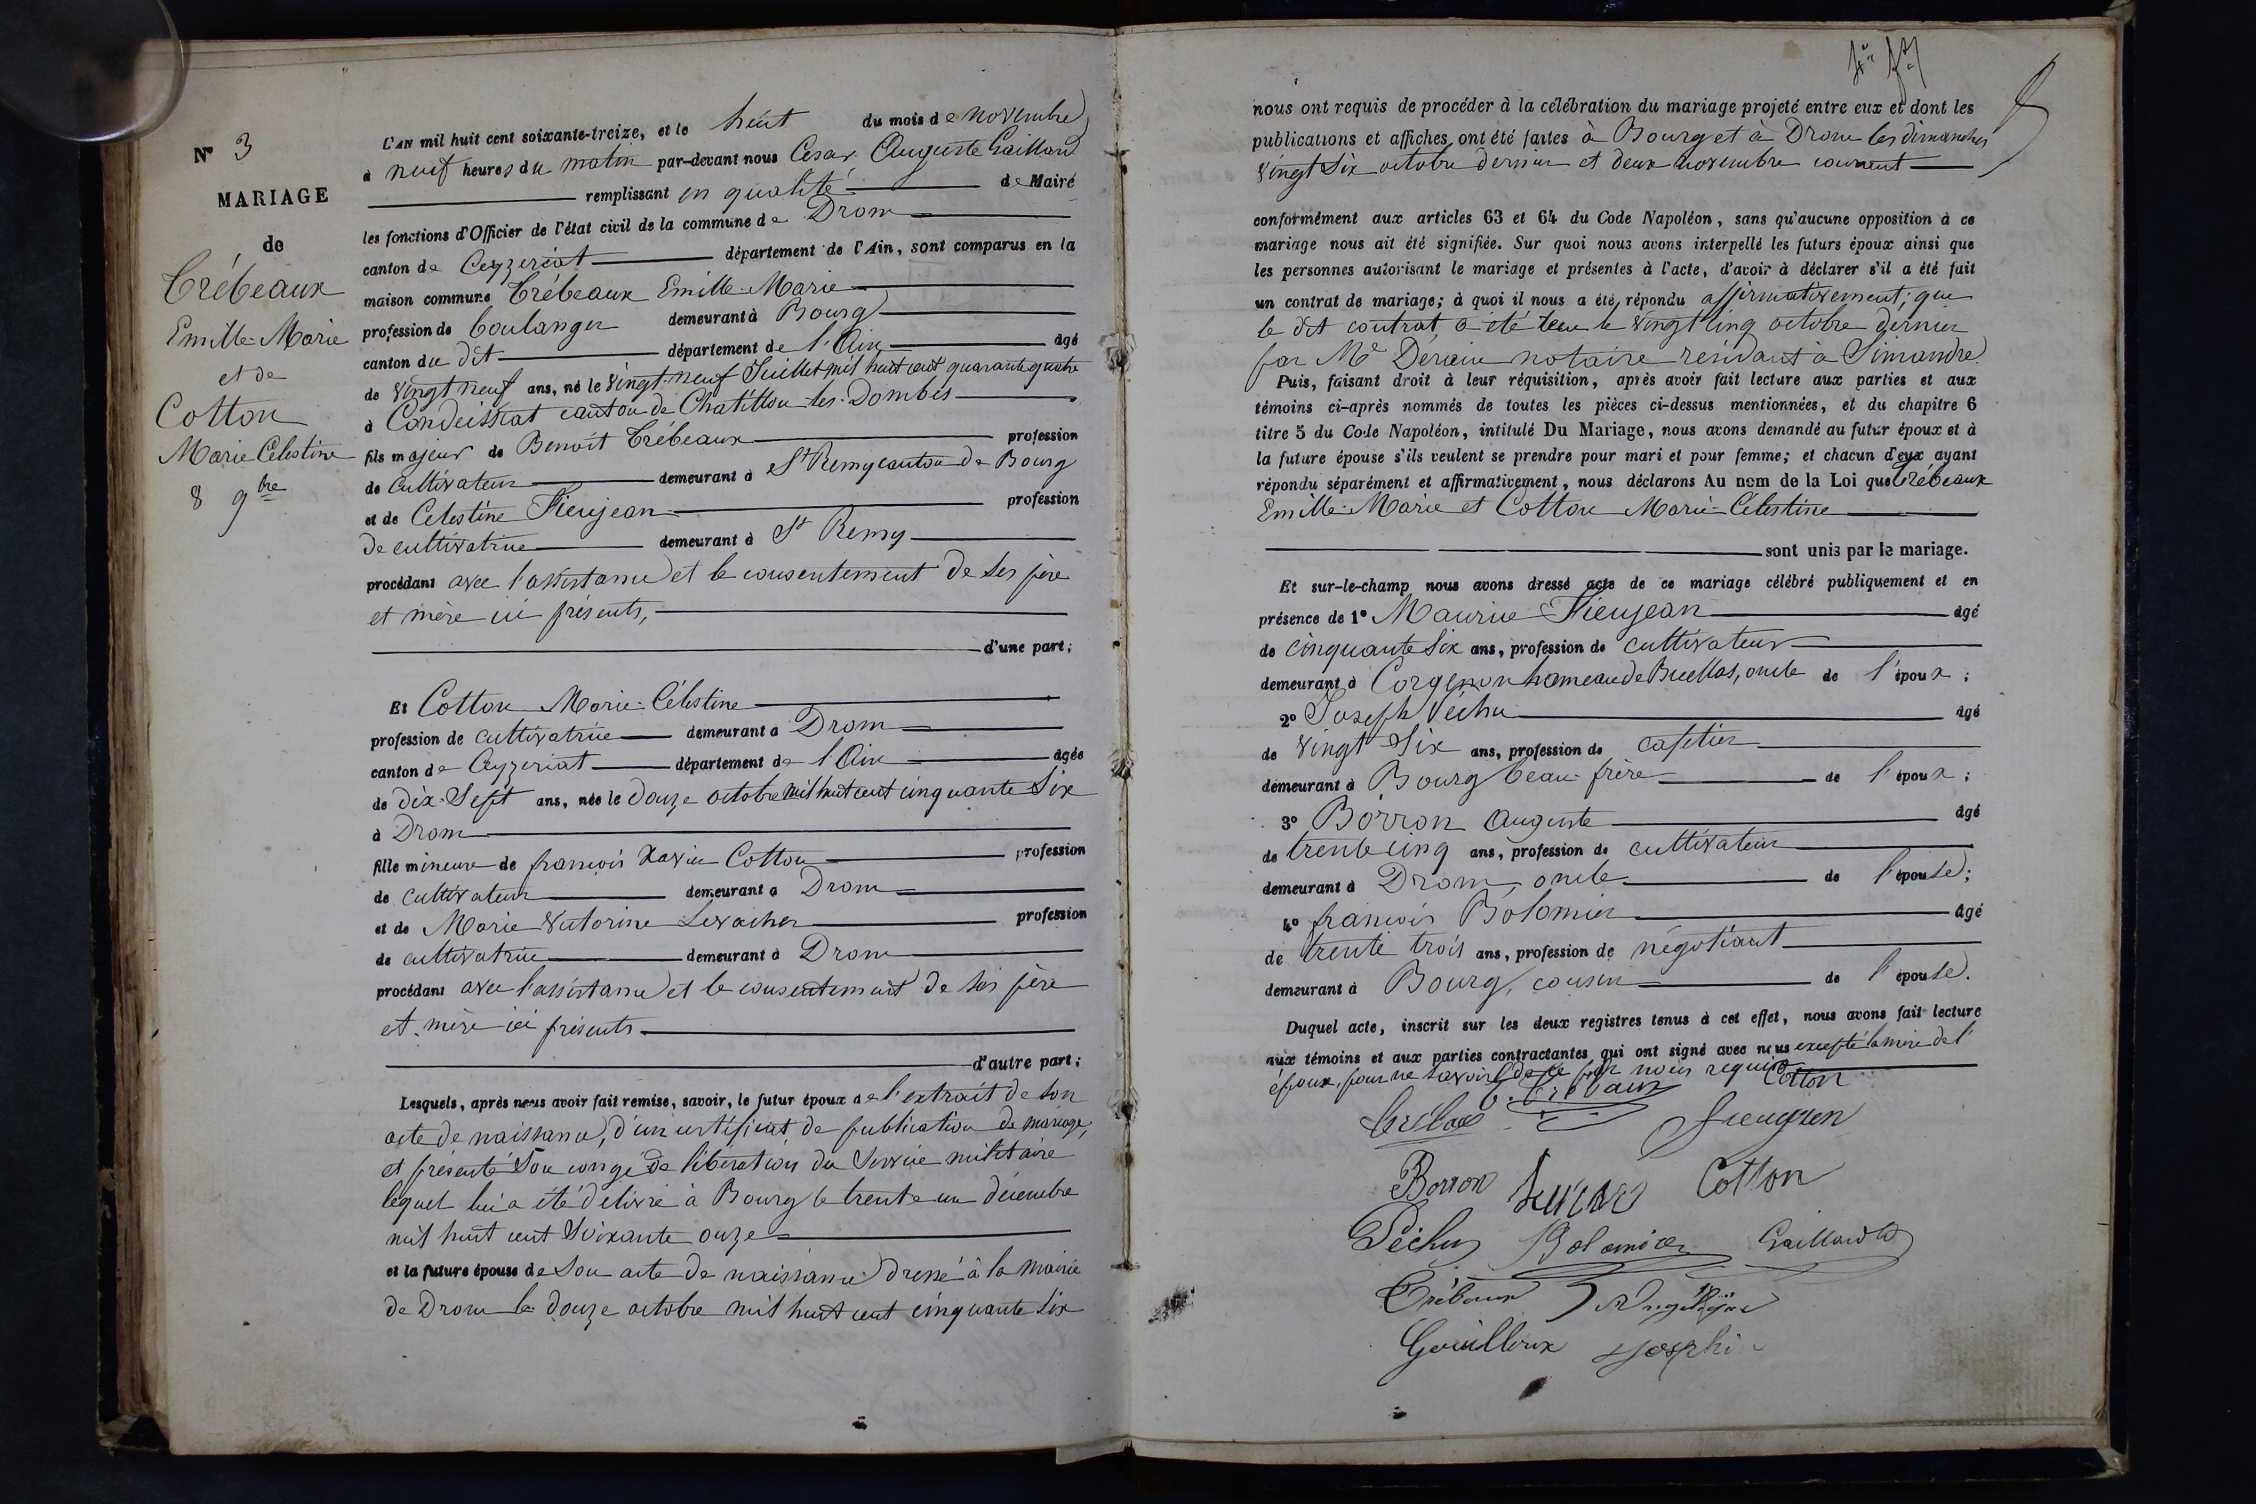 N° 3
MARIAGE
de
Trébeaux
Emille-Marie
et de
Cotton
Marie Célestine
8 9bre
L'AN mil huit cent soixante-treize, et le huit du mois de novembre
à neuf heures du matin par-devant nous César Auguste Gaillard
remplissant en qualité de Maire
les fonctions d'Officier de l'état civil de la commune de Drom
canton de Ceyzeriat département de l'Ain, sont comparus en la
maison commune Trébeaux Emille-Marie
profession de boulanger demeurant à Bourg
canton du dit département de l'Ain âgé
de vingt neuf ans, né le vingt-neuf Juillet mil huit cent quarante quatre
à Condeissiat canton de Chatillon-les-Dombes
fils majeur de Benoit Trébeaux profession
de cultivateur demeurant à St Remy canton de Bourg
et de Célestine Fieujean profession
de cultivatrice demeurant à St Remy
procédant avec l'assistance et le consentement de ses père
et mère ici présents,
d'une part;
Et Cotton Marie-Célestine
profession de cultivatrice demeurant à Drom
canton de Ceyzeriat département de l'Ain agée
de Dix-Sept ans, née le douze octobre mil huit cent cinquante Six
à Drom
fille mineure de françois Xavier Cotton profession
de cultivateur demeurant à Drom
et de Marie Victorine Levacher profession
de cultivatrice demeurant à Drom
procédant avec l'assistance et le consentement de ses père
et mère ici présents
d'autre part;
Lesquels, après nous avoir fait remise, savoir, le futur époux de l'extrait de son
acte de naissance, d'un certificat de publication de mariage,
et présenté Son congé de libération du Service militaire
lequel lui a été delivré à Bourg le trente un décembre
mil huit cent Soixante onze
et la future épouse de Son acte de naissance dressé à la mairie
de Drom le douze octobre mil huit cent cinquante Six
nous ont requis de procéder à la célébration du mariage projeté entre eux et dont les
publications et affiches ont été faites à Bourg et à Drom les dimanches
vingt Six octobre dernier et deux novembre courant
conformément aux articles 63 et 64 du Code Napoléon, sans qu'aucune opposition à ce
mariage nous ait été signifiée. Sur quoi nous avons interpellé les futurs époux ainsi que
les personnes autorisant le mariage et présentes à l'acte, d'avoir à déclarer s'il a été fait
un contrat de mariage; à quoi il nous a été répondu affirmativement; que
le dit contrat a été le vingt cinq octobre dernier
par Me notaire résidant à Simandre
Puis, faisant droit à leur réquisition, après avoir fait lecture aux parties et aux
témoins ci-après nommés de toutes les pièces ci-dessus mentionnées, et du chapitre 6
titre 5 du Code Napoléon, intitulé Du Mariage, nous avons demandé au futur époux et à
la future épouse s'ils veulent se prendre pour mari et pour femme; et chacun d'eux ayant
répondu séparément et affirmativement, nous déclarons Au nom de la Loi que Trébeaux
Emille-Marie et Cotton Marie-Célestine
sont unis par le mariage.
Et sur-le-champ nous avons dressé acte de ce mariage célébré publiquement et en
présence de 1° Maurice Fieujean âgé
de cinquante Six ans, profession de cultivateur
demeurant à Corgenon hameau de Buellas, oncle de l'époux;
2° Joseph Péchu âgé
de vingt Six ans, profession de cafetier
demeurant à Bourg beau-frère de l'époux;
3° Borron Auguste âgé
de trente cinq ans, profession de cultivateur
demeurant à Drom, oncle de l'épouse;
4° françois Bolomier âgé
de trente trois ans, profession de négotiant
demeurant à Bourg, cousin de l'épouse.
Duquel acte, inscrit sur les deux registres tenus à cet effet, nous avons fait lecture
aux témoins et aux parties contractantes qui ont signé avec nous excepté la mère de l'
époux, pour ne savoir de ce par nous requise
Cotton
Borron Cotton
Péchu Bolomier Gaillard
Gouilloux Josephi